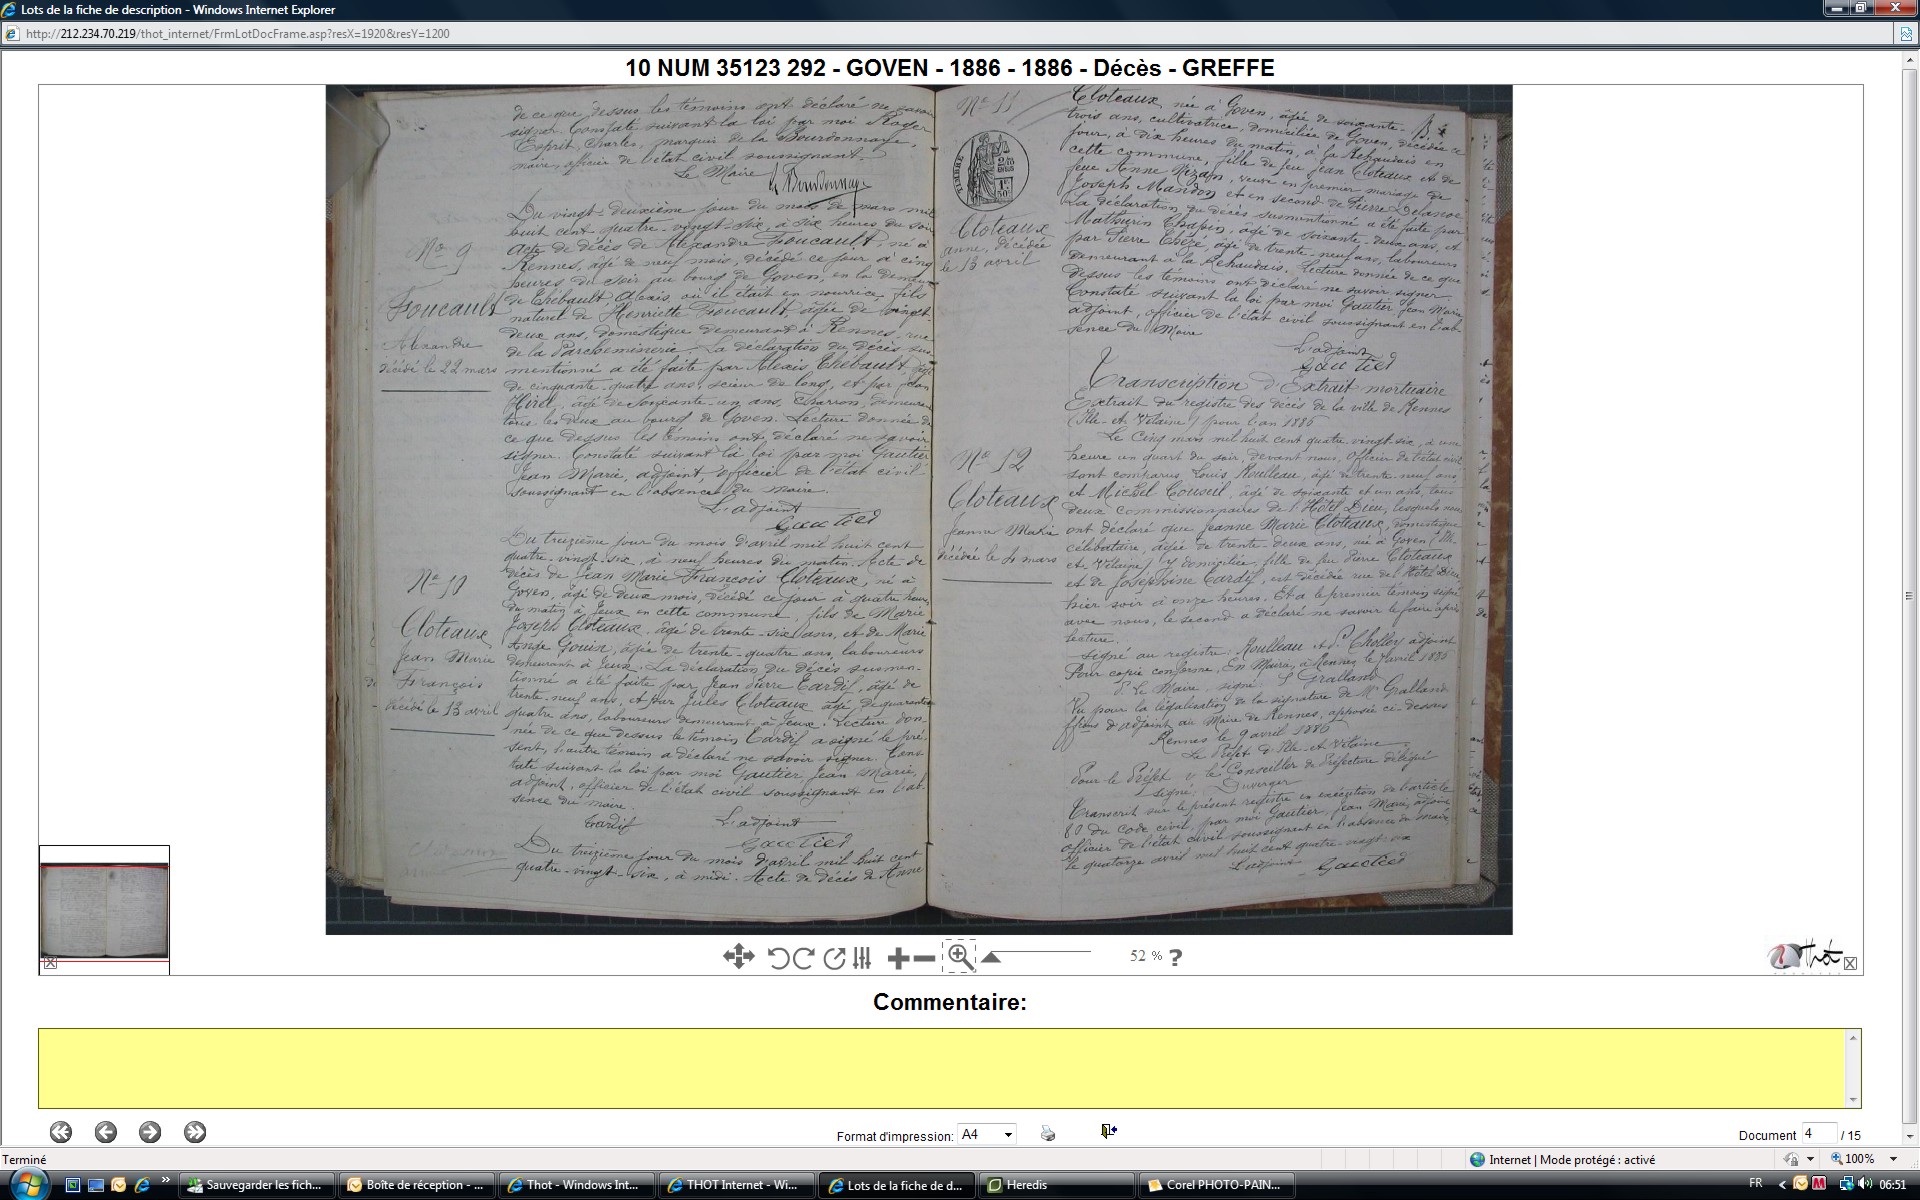 Lots de la fiche de description - Windows Internet Explorer
http://212.234.70.219/thot_internet/FrmLotDocFrame.asp?resX=1920&resY=1200
10 NUM 35123 292 - GOVEN - 1886 - 1886 - Décès - GREFFE
de ce que dessus les témoins ont déclaré ne savoir
signer. Constaté suivant la loi par moi Roger
Esprit, Charles, marquis de la Bourdonnaye,
maire, officier de l'état civil soussignant.
Le Maire
Nº 9
Foucault
Alexandre
décédé le 22 mars
Du vingt-deuxième jour du mois de mars mil
huit cent quatre-vingt-six, à six heures du soir
Acte de décès de Alexandre Foucault, né à
Rennes, âgé de neuf mois, décédé ce jour à cinq
heures du soir au bourg de Goven, en la demeure
de Thébault Alexis, où il était en nourrice, fils
naturel de Henriette Foucault, âgée de vingt-
deux ans, domestique demeurant à Rennes, rue
de la Parcheminerie. La déclaration du décès sus-
mentionné a été faite par Alexis Thébault, âgé
de cinquante-quatre ans, scieur de long, et par Jean
Hirel, âgé de soixante-un ans, charron, demeurant
tous les deux au bourg de Goven. Lecture donnée de
ce que dessus les témoins ont déclaré ne savoir
signer. Constaté suivant la loi par moi Gautier
Jean Marie, adjoint, officier de l'état civil
soussignant en l'absence du maire.
L'adjoint
Gautier
Nº 10
Cloteaux
Jean Marie
François
décédé le 13 avril
Du treizième jour du mois d'avril mil huit cent
quatre-vingt-six, à neuf heures du matin. Acte de
décès de Jean Marie François Cloteaux, né à
Goven, âgé de deux mois, décédé ce jour à quatre heures
du matin à Jeux en cette commune, fils de Marie
Joseph Cloteaux, âgé de trente-six ans, et de Marie
Ange Gouin, âgée de trente-quatre ans, laboureurs
demeurant à Jeux. La déclaration du décès susmen-
tionné a été faite par Jean Pierre Tardif, âgé de
trente-neuf ans, et par Jules Cloteaux âgé de quarante
quatre ans, laboureurs demeurant à Jeux. Lecture don-
née de ce que dessus le témoin Tardif a signé le pré-
sent, l'autre témoin a déclaré ne savoir signer. Cons-
taté suivant la loi par moi Gautier, Jean Marie,
adjoint, officier de l'état civil soussignant en l'ab-
sence du maire.
Tardif L'adjoint
Gautier
Du treizième jour du mois d'avril mil huit cent
quatre-vingt-six, à midi. Acte de décès de Anne
Nº 11
TIMBRE
Cloteaux
anne, décédée
le 13 avril
Cloteaux, née à Goven, âgée de soixante-
trois ans, cultivatrice, domiciliée de Goven, décédée ce
jour, à dix heures du matin, à la Rehaudais en
cette commune, fille de feu Jean Cloteaux et de
feue Anne Nizan, veuve en premier mariage de
Joseph Mandon et en second de Pierre Delanoë
La déclaration du décès susmentionné a été faite par
Mathurin Chapin, âgé de soixante-deux ans, et
par Pierre Ebèze, âgé de trente-neuf ans, laboureurs
demeurant à la Rehaudais. Lecture donnée de ce que
dessus les témoins ont déclaré ne savoir signer.
Constaté suivant la loi par moi Gautier Jean Marie
adjoint, officier de l'état civil soussignant en l'ab-
sence du Maire
L'adjoint
Gautier
Nº 12
Cloteaux
Jeanne Marie
décédée le 4 mars
Transcription d'Extrait mortuaire
Extrait du registre des décès de la ville de Rennes
(Ille-et-Vilaine) pour l'an 1886
Le cinq mars mil huit cent quatre-vingt-six, à une
heure un quart du soir, devant nous, officier de l'état civil
sont comparus Louis Roulleau, âgé de trente-neuf ans,
et Michel Conseil, âgé de soixante et un ans, tous
deux commissionnaires de l'Hôtel Dieu, lesquels nous
ont déclaré que Jeanne Marie Cloteaux, domestique
célibataire, âgée de trente-deux ans, née à Goven (Ille
et Vilaine) y domiciliée, fille de feu Pierre Cloteaux
et de Josephine Tardif, est décédée rue de l'Hôtel Dieu
hier soir à onze heures. Et a le premier témoin signé
avec nous, le second a déclaré ne savoir le faire après
lecture.
signé au registre: Roulleau et P. Cholley adjoint
Pour copie conforme, En Mairie, à Rennes, le 7 avril 1886
P. Le Maire, signé Gralland
Vu pour la légalisation de la signature de Mr Gralland
ffons d'adjoint au Maire de Rennes, apposée ci-dessus
Rennes le 9 avril 1886
Le Préfet d'Ille-et-Vilaine
Pour le Préfet le Conseiller de Préfecture délégué
signé: Duverger
Transcrit sur le présent registre en exécution de l'article
80 du code civil, par moi Gautier, Jean Marie, adjoint
officier de l'état civil soussignant en l'absence du maire
le quatorze avril mil huit cent quatre-vingt-six
L'adjoint Gautier
52 % ?
Thot
Commentaire:
Format d'impression: A4
Document 4 / 15
Terminé
Internet | Mode protégé : activé
100%
Sauvegarder les fich...
Boîte de réception - ...
Thot - Windows Int...
THOT Internet - Wi...
Lots de la fiche de d...
Heredis
Corel PHOTO-PAIN...
FR
06:51